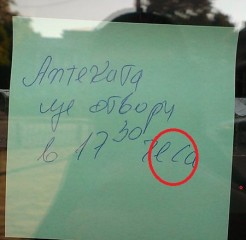 Аптеката
ще отвори
в 17 30 чеса